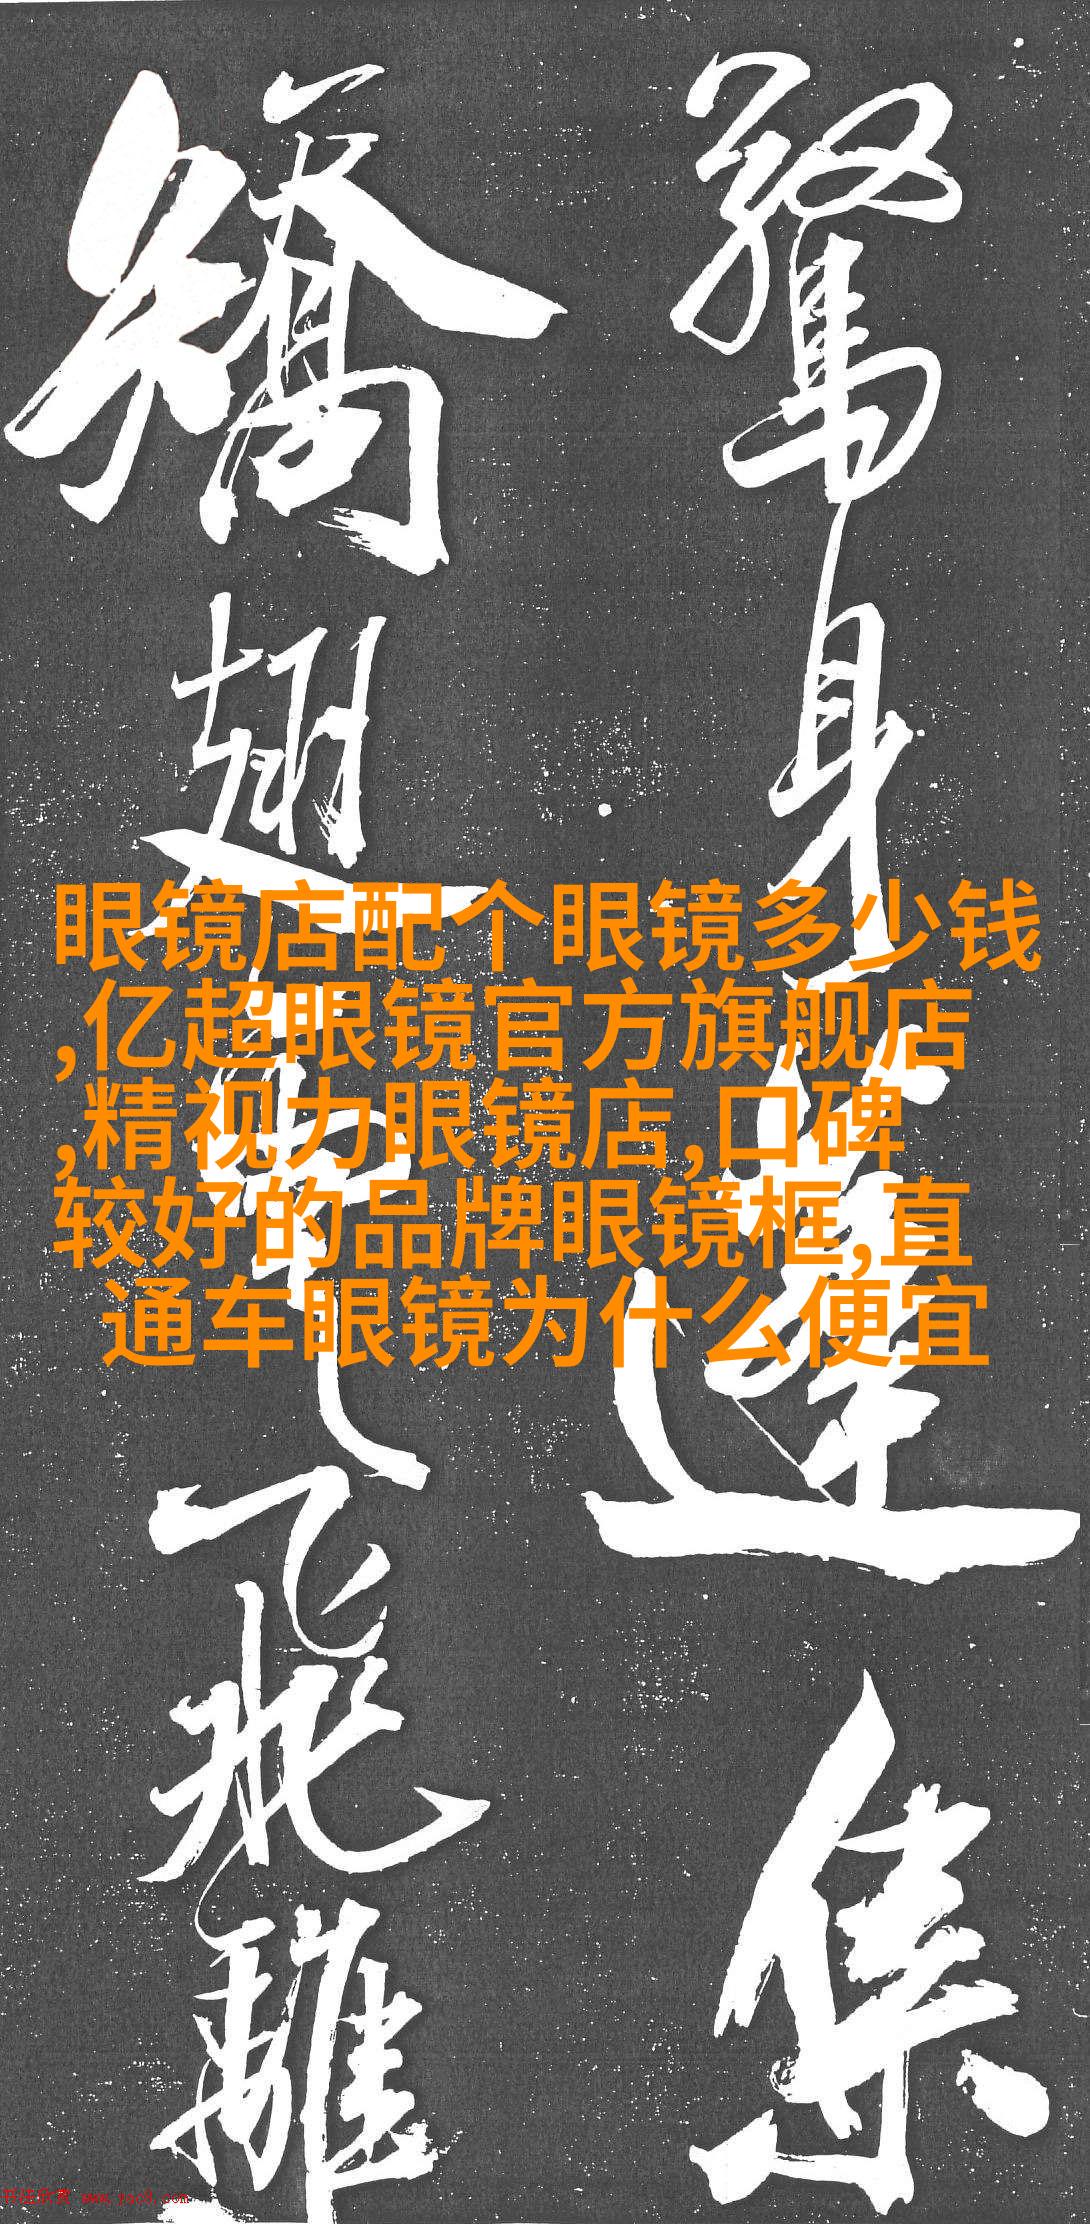 驚身蓬集
矯翅雪飛離
眼镜店配个眼镜多少钱
,亿超眼镜官方旗舰店
,精视力眼镜店,口碑
较好的品牌眼镜框,直
通车眼镜为什么便宜
书法欣赏 www.yac8.com